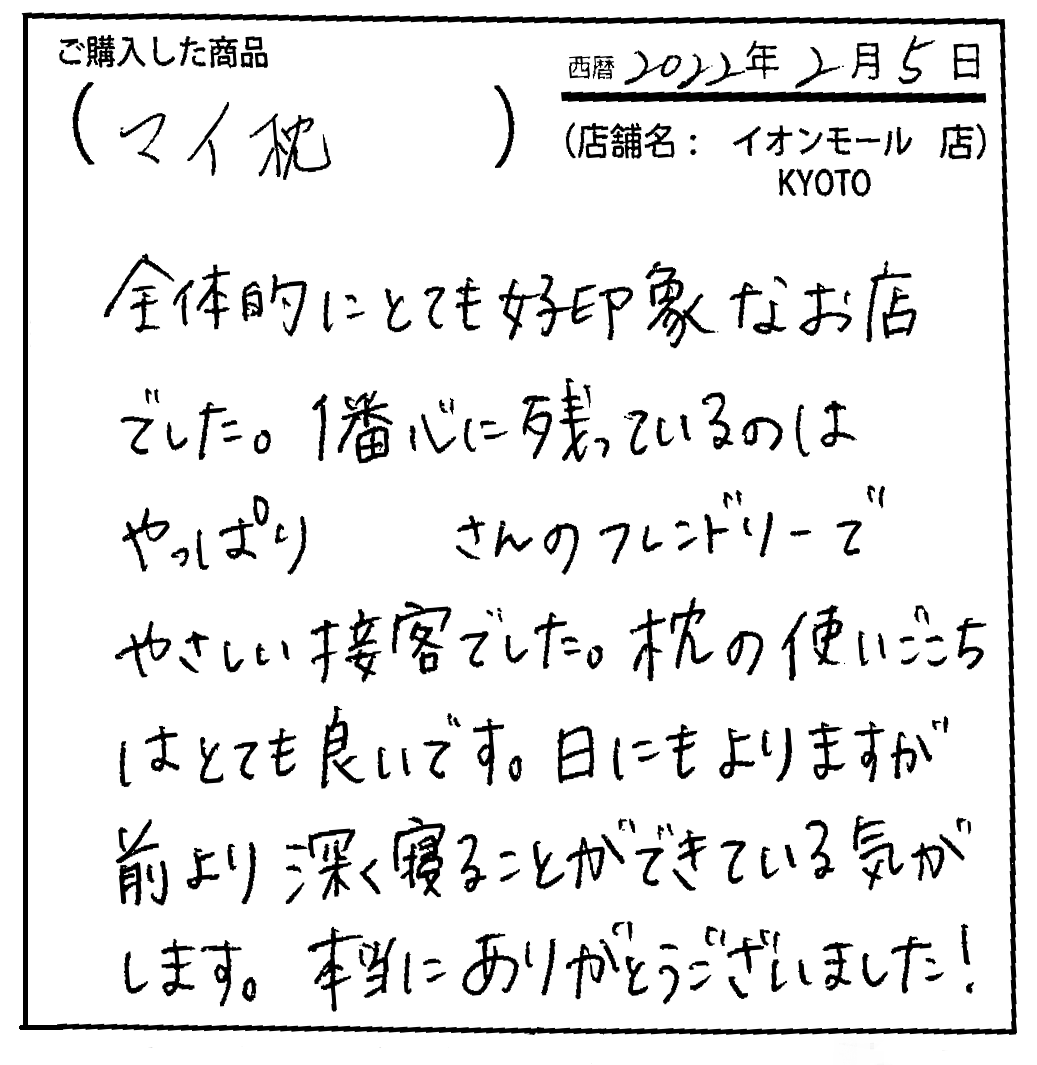 ご購入した商品
西暦 2022年 2月 5日
(マイ枕)
(店舗名： イオンモール 店)
KYOTO
全体的にとても好印象なお店
でした。1番心に残っているのは
やっぱり さんのフレンドリーで
やさしい接客でした。枕の使いごこち
はとても良いです。日にもよりますが
前より深く寝ることができている気が
します。本当にありがとうございました!